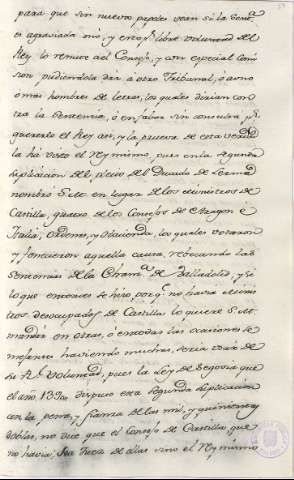 para que sin nuevos papeles vean si la Sent.ª
es agraviada ò nò, y en esto es libre voluntad del
Rey lo remite al Consejo, y con especial Comi
sion pudiendola dàr à otro Tribunal, ò a uno
ò mas hombres de letras, los quales dirian con
tra la Sentencia, ò en favor sin consulta, p.r
quererlo el Rey asi, y la prueva de esta verdad
la ha visto el Rey mismo, pues en la segunda
suplicacion del pleito del Ducado de Lerma
nombrò S. M. en lugar de los ministros de
Castilla, quatro de los Consejos de Aragon è
Italia, Ordenes, y Hacienda, los quales votaron
y fenecieron aquella causa, rebocando las
Sentencias de la Chan.ria de Valladolid, y si
lo que entonces se hizo, porq.e no havia minis
tros desocupados de Castilla lo quiere S. M.
mandar en otras, ò en todas las ocasiones se
mejantes haviendo muchas, seria usar de
su R.l voluntad, pues la Ley de Segovia que
el año 1390 dispuso esta segunda suplicacion
con la pena, y fianza de las mil, y quinientas
doblas, no dice que el Consejo de Castilla, que
no havia, sea Juez de ellas sino el Rey mismo